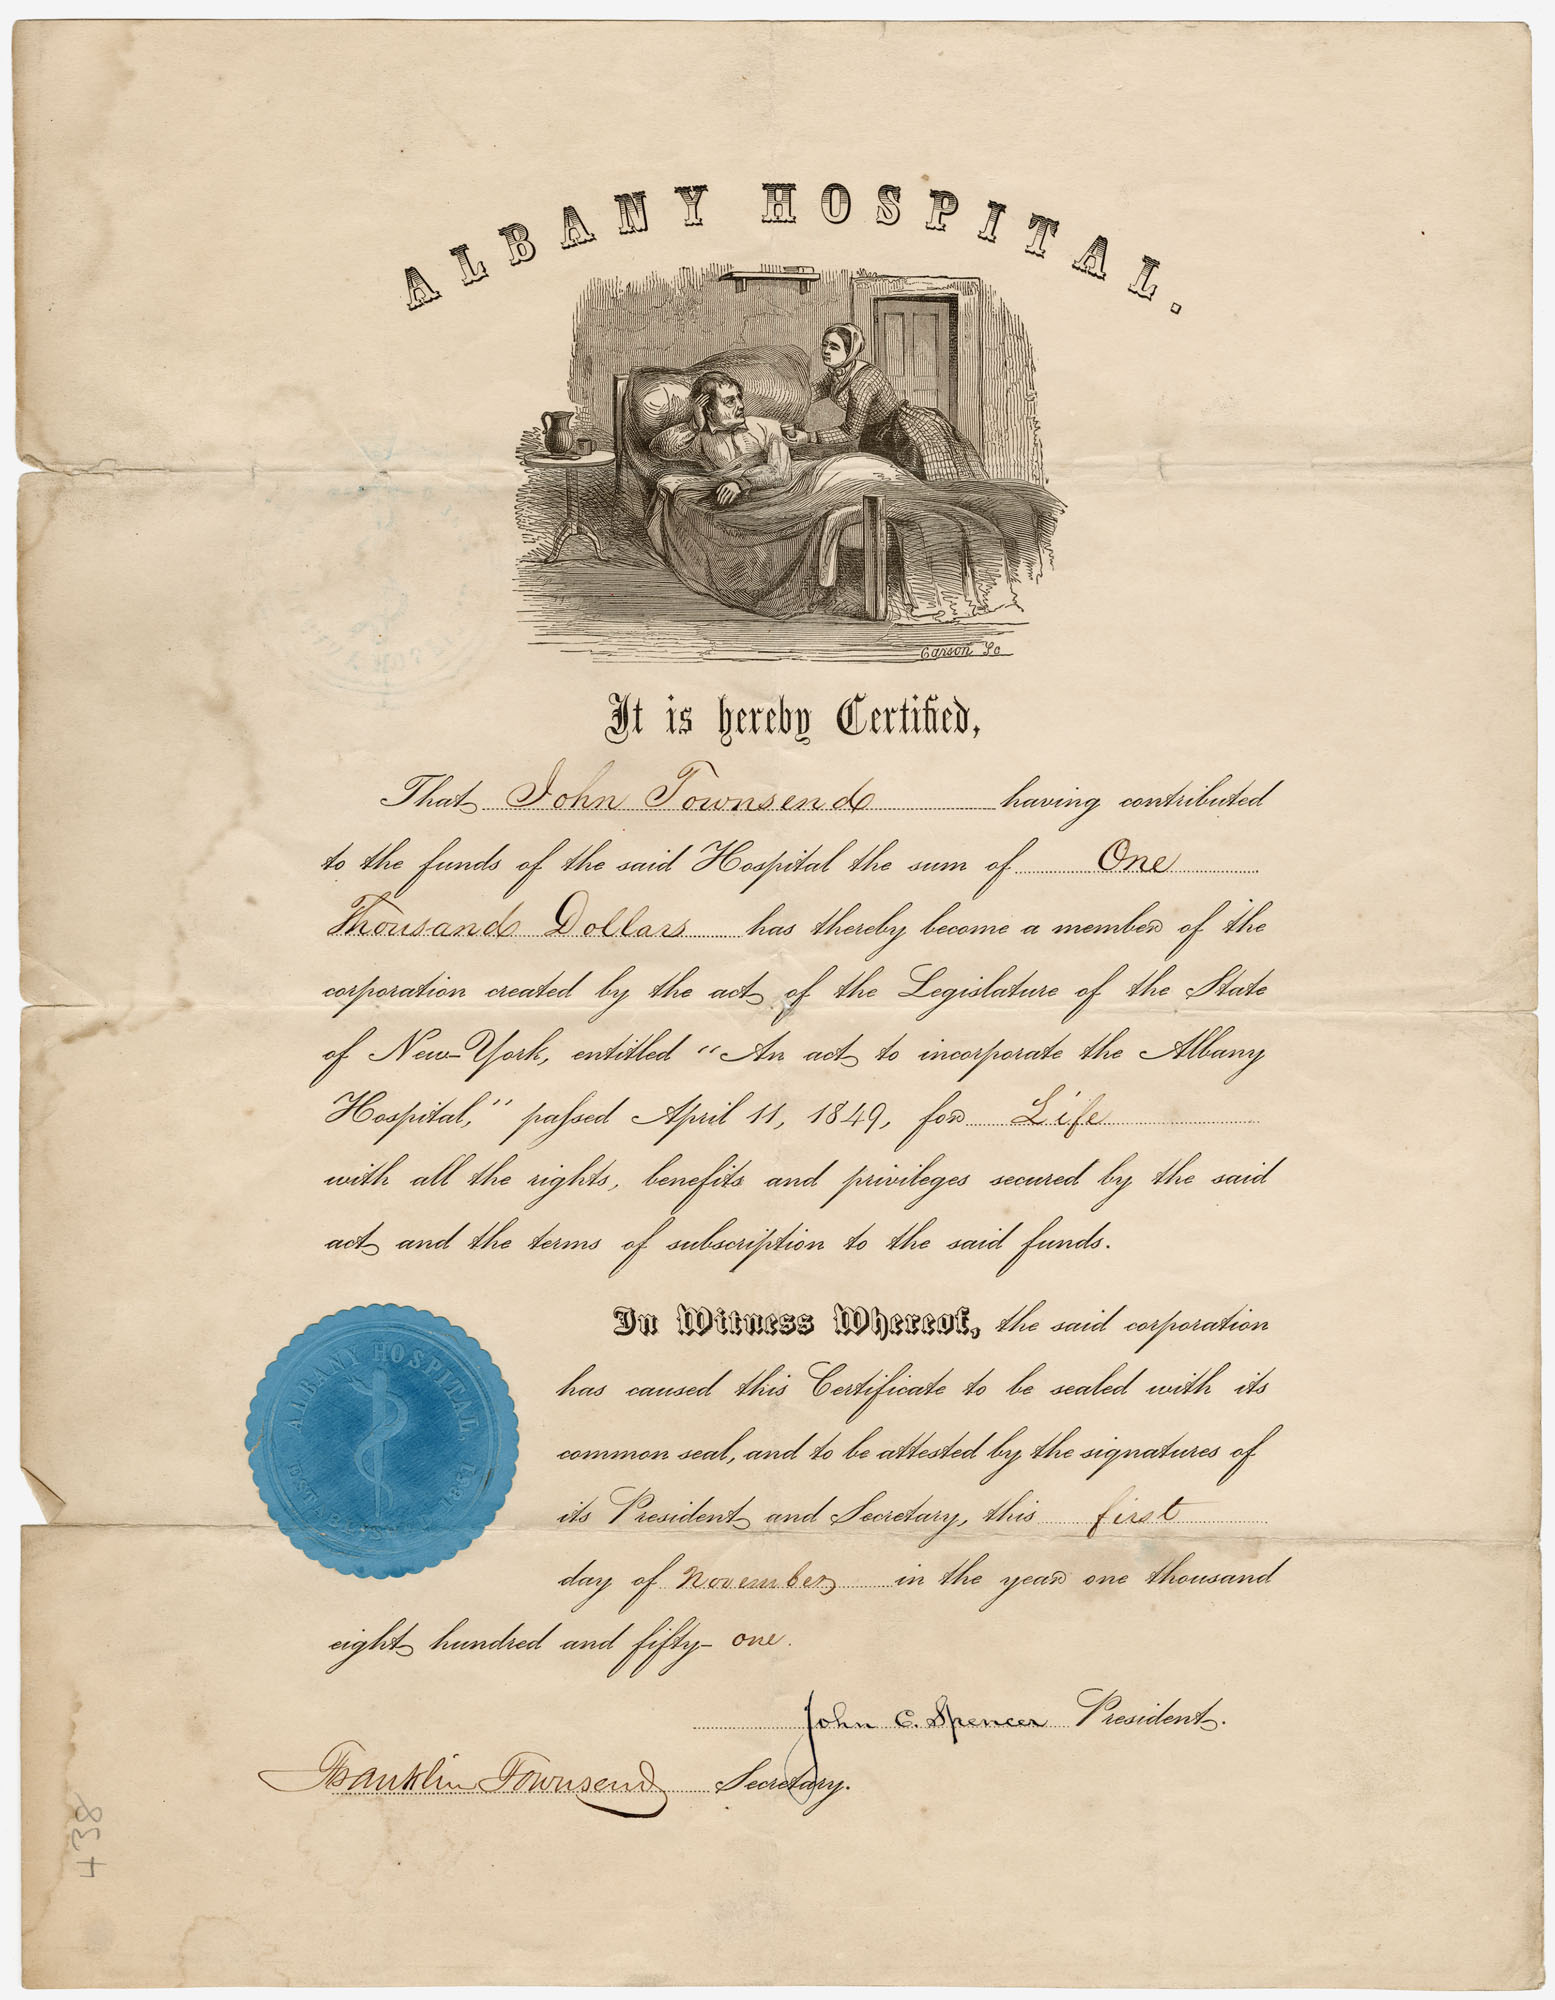 ALBANY HOSPITAL.
Carson Sc
It is hereby Certified,
That John Townsend having contributed
to the funds of the said Hospital the sum of One
Thousand Dollars has thereby become a member of the
corporation created by the act of the Legislature of the State
of New-York, entitled "An act to incorporate the Albany
Hospital," passed April 11, 1849, for Life
with all the rights, benefits and privileges secured by the said
act and the terms of subscription to the said funds.
In Witness Whereof, the said corporation
has caused this Certificate to be sealed with its
common seal, and to be attested by the signatures of
its President and Secretary, this first
day of November in the year one thousand
eight hundred and fifty-one.
John C. Spencer President.
Franklin Townsend Secretary.
ALBANY HOSPITAL
438